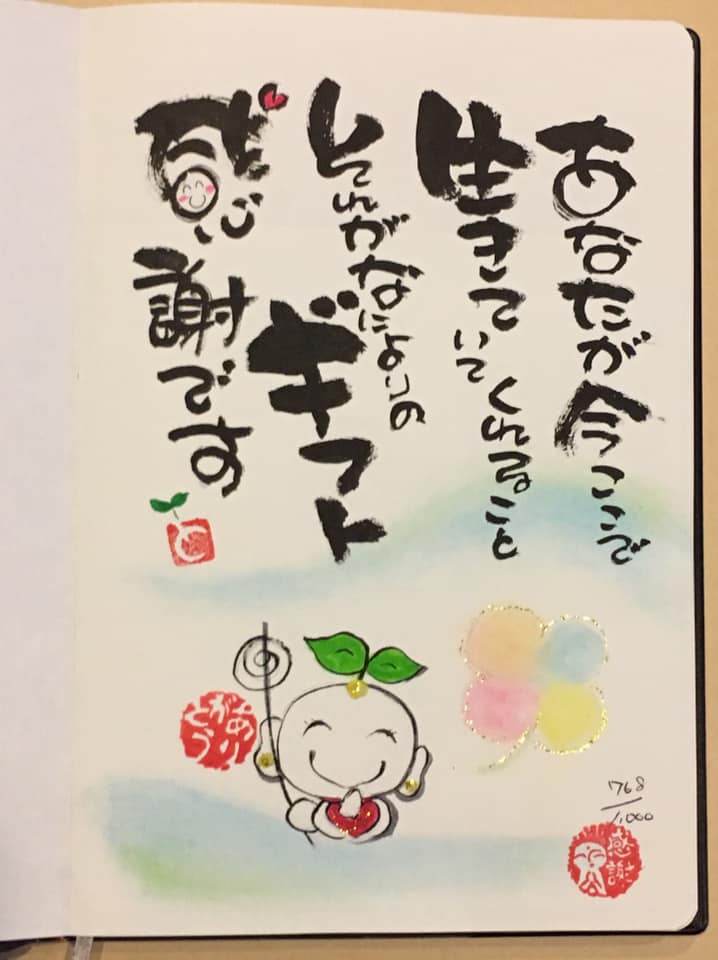 あなたが今ここで
生きていてくれること
それがなによりの
ギフト
感謝です
ありがとう
768/1,000
感謝